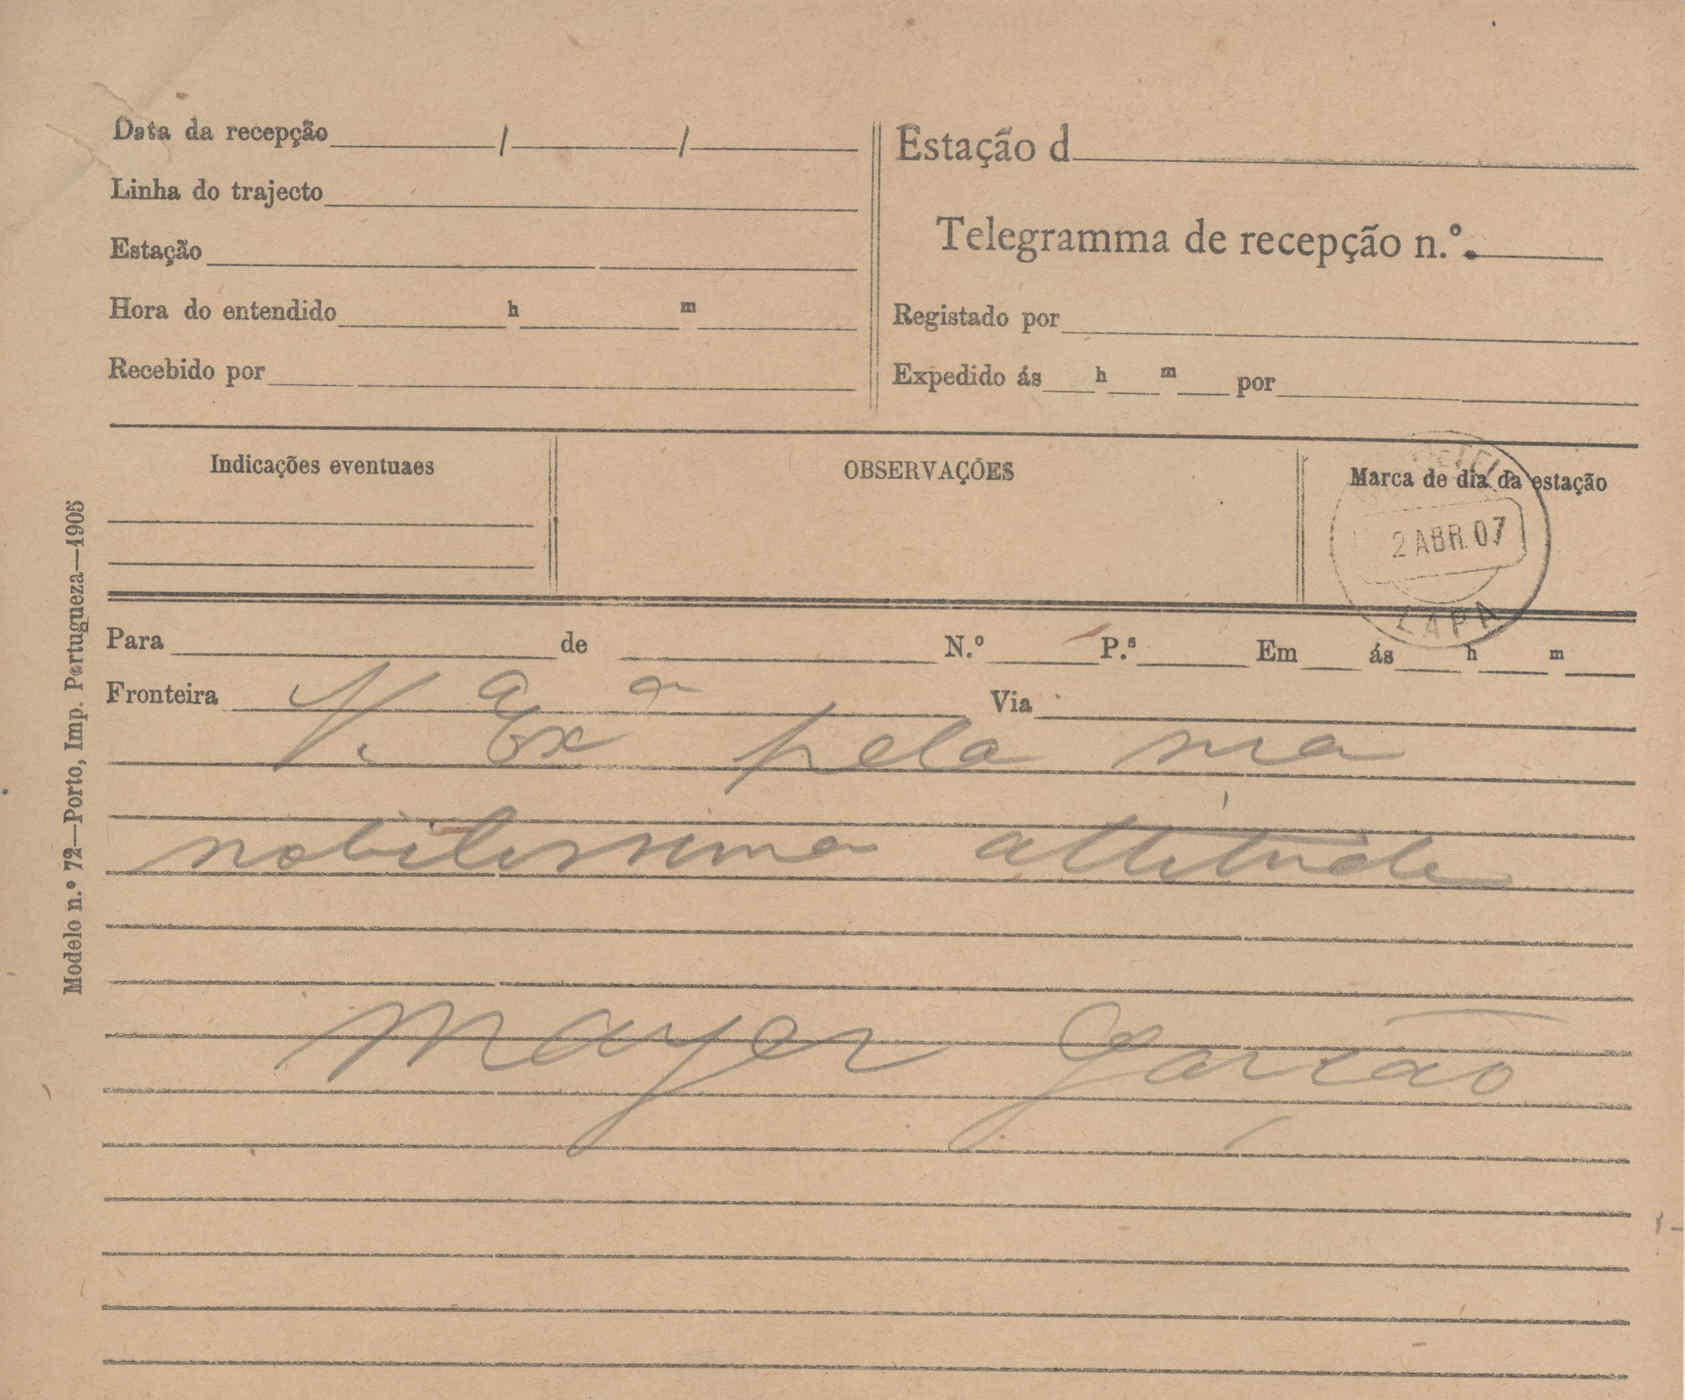 Data da recepção / /
Linha do trajecto
Estação
Hora do entendido h m
Recebido por
Estação d
Telegramma de recepção n.º
Registado por
Expedido ás h m por
Indicações eventuaes
OBSERVAÇÕES
Marca de dia da estação
2 ABR. 07
LAPA
Para de N.º P.s Em ás h m
Fronteira Via
V. Exª pela sua
nobilissima attitude
Mayer Garção
Modelo n.º 72—Porto, Imp. Portugueza—1905